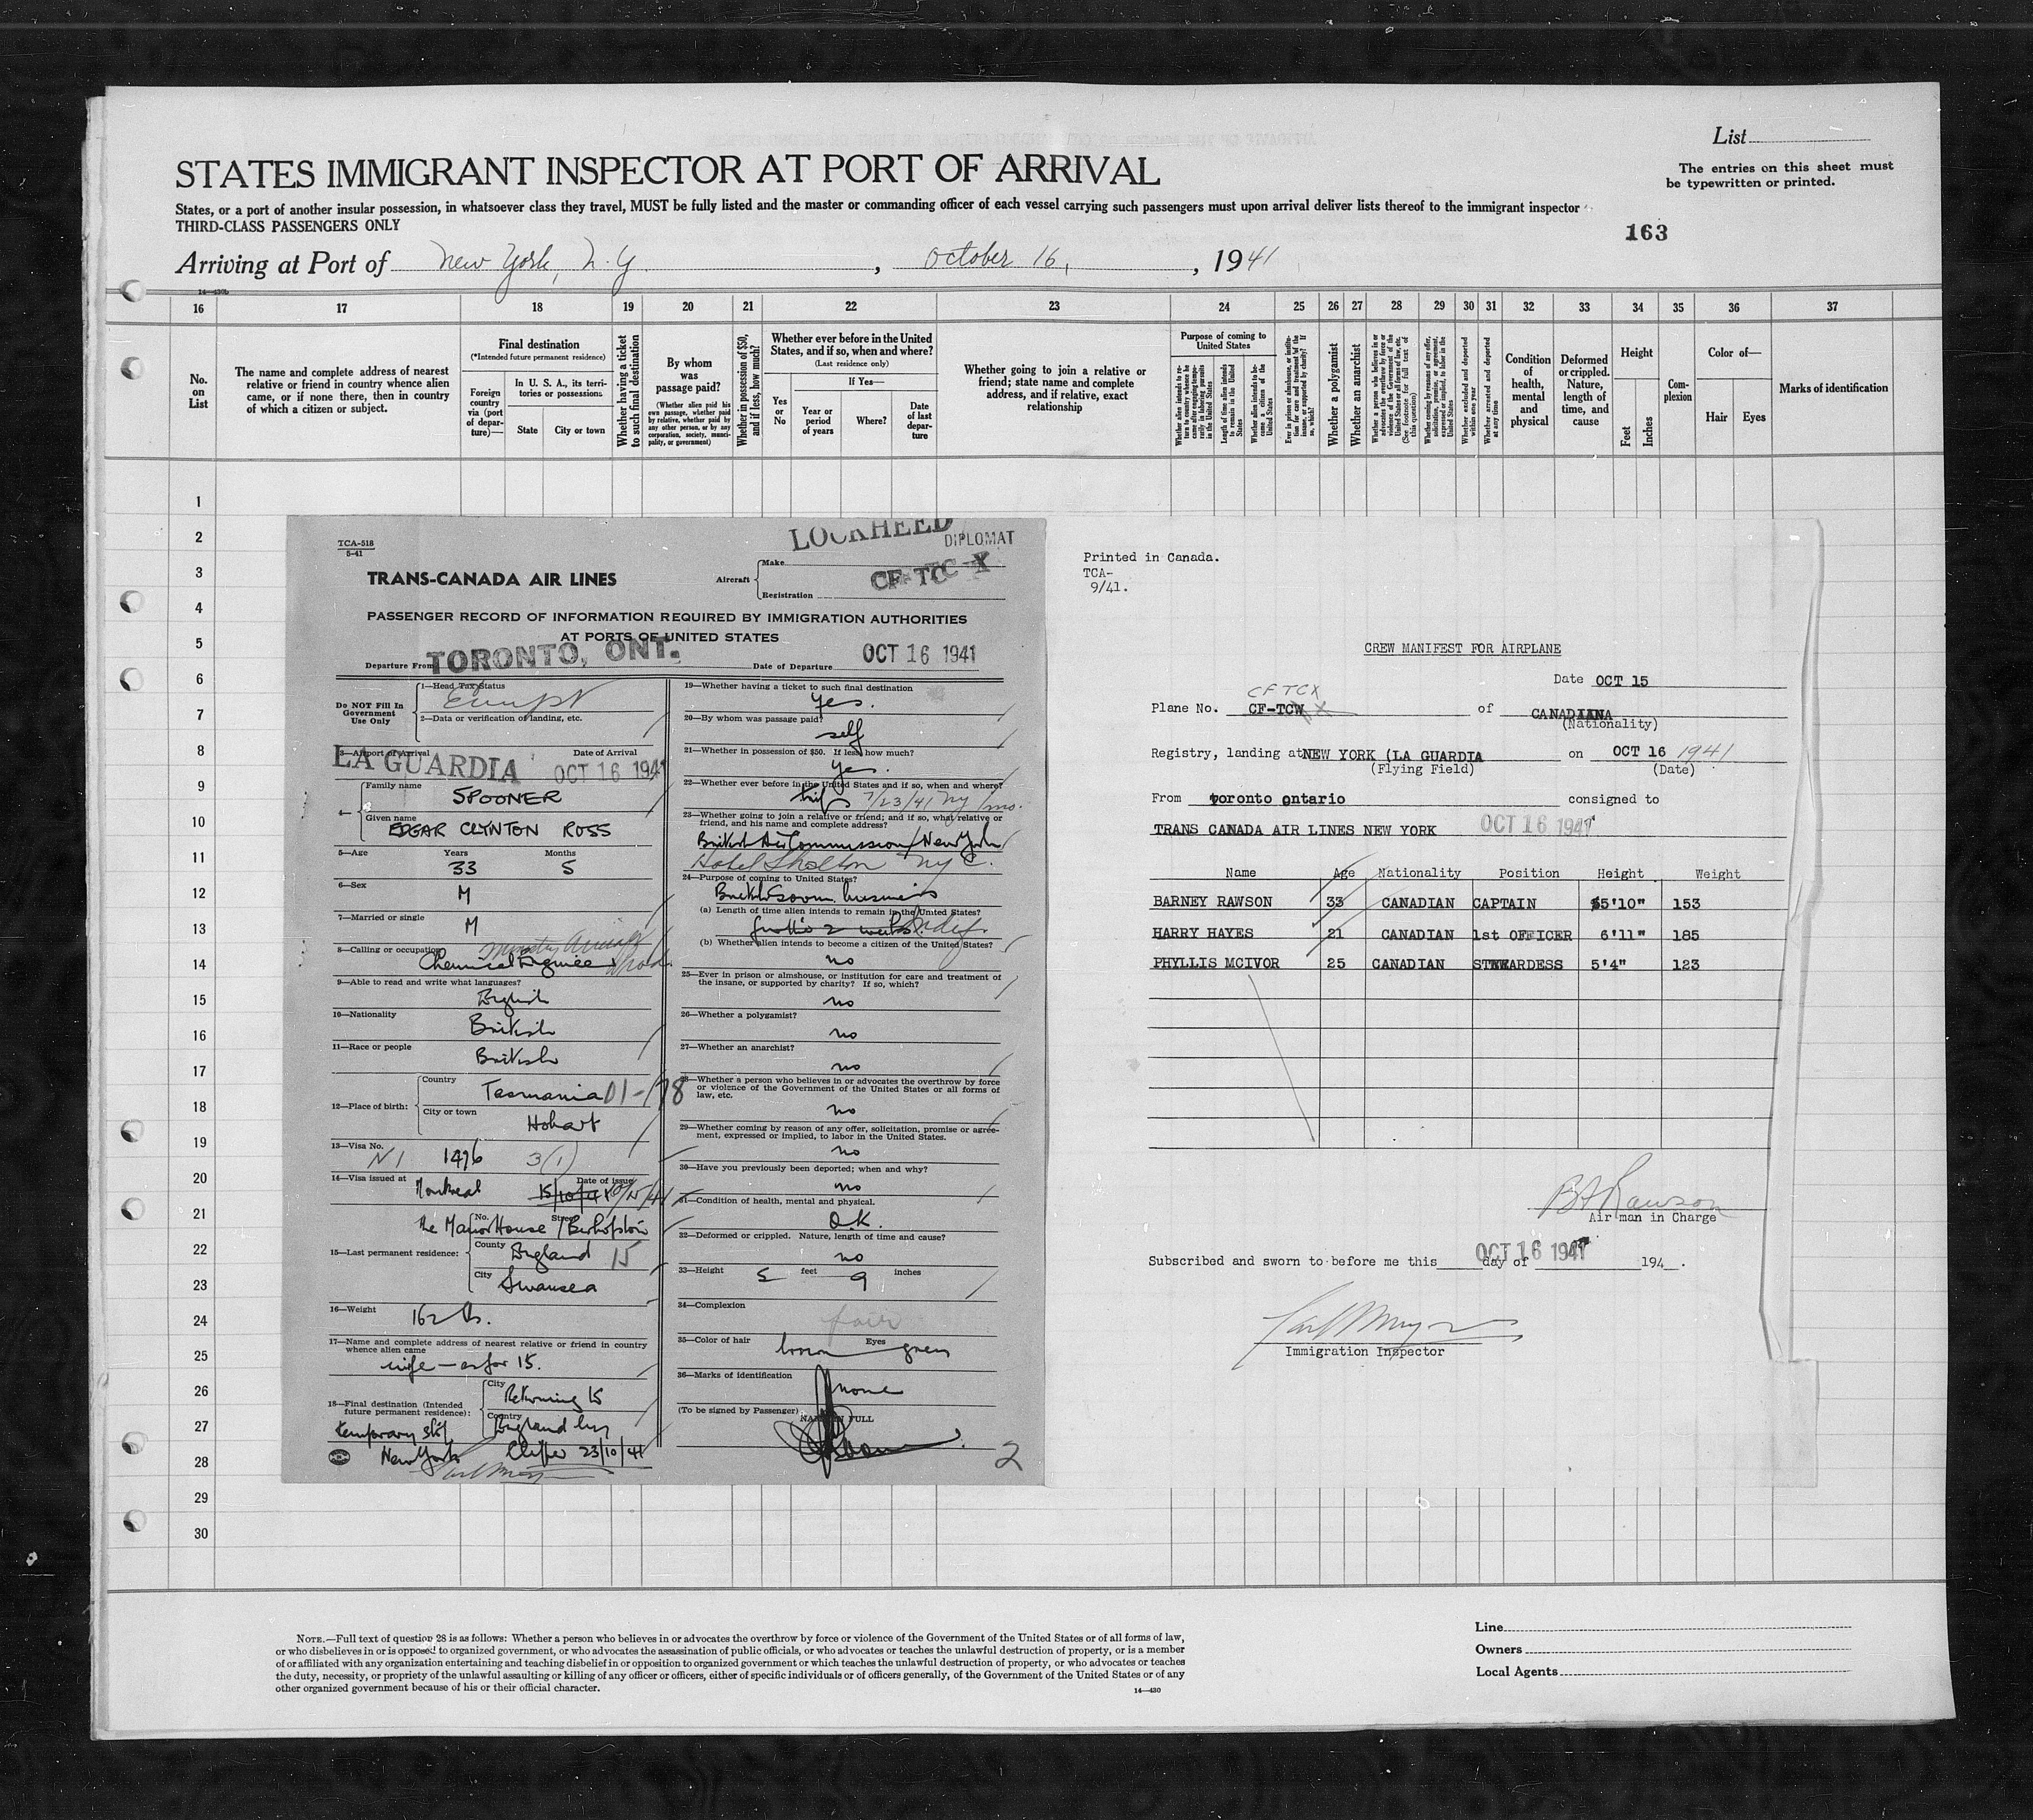 List
STATES IMMIGRANT INSPECTOR AT PORT OF ARRIVAL
The entries on this sheet must
be typewritten or printed.
States, or a port of another insular possession, in whatsoever class they travel, MUST be fully listed and the master or commanding officer of each vessel carrying such passengers must upon arrival deliver lists thereof to the immigrant inspector
THIRD-CLASS PASSENGERS ONLY
163
Arriving at Port of New York, N.Y. , October 16, , 1941
14-430b
16 17 18 19 20 21 22 23 24 25 26 27 28 29 30 31 32 33 34 35 36 37
No. on List
The name and complete address of nearest
relative or friend in country whence alien
came, or if none there, then in country
of which a citizen or subject.
Final destination
(*Intended future permanent residence)
Foreign country via (port of departure)—
In U. S. A., its territories or possessions
State
City or town
Whether having a ticket to such final destination
By whom was passage paid?
(Whether alien paid his own passage, whether paid by relative, whether paid by any other person, or by any corporation, society, municipality, or government)
Whether in possession of $50, and if less, how much?
Whether ever before in the United
States, and if so, when and where?
(Last residence only)
Yes or No
If Yes—
Year or period of years
Where?
Date of last departure
Whether going to join a relative or
friend; state name and complete
address, and if relative, exact
relationship
Purpose of coming to
United States
Length of time alien intends to remain in the United States
Whether alien intends to become a citizen of the United States
Whether a polygamist
Whether an anarchist
Whether excluded and deported within one year
Whether arrested and deported at any time
Condition of health, mental and physical
Deformed or crippled. Nature, length of time, and cause
Height
Feet
Inches
Complexion
Color of—
Hair
Eyes
Marks of identification
1
2
3
4
5
6
7
8
9
10
11
12
13
14
15
16
17
18
19
20
21
22
23
24
25
26
27
28
29
30
TCA-518
5-41
LOCKHEED
DIPLOMAT
TRANS-CANADA AIR LINES
Aircraft
Make
CF-TC-X
Registration
PASSENGER RECORD OF INFORMATION REQUIRED BY IMMIGRATION AUTHORITIES
AT PORTS OF UNITED STATES
Departure From TORONTO, ONT. Date of Departure OCT 16 1941
Do NOT Fill In
Government
Use Only
1—Head Tax Status
2—Data or verification of landing, etc.
3—Airport of Arrival Date of Arrival
LA GUARDIA OCT 16 1941
4—
Family name
SPOONER
Given name
EDGAR CLYNTON ROSS
5—Age Years Months
33 5
6—Sex
M
7—Married or single
M
8—Calling or occupation
Chemical Engineer
9—Able to read and write what languages?
English
10—Nationality
British
11—Race or people
British
12—Place of birth:
Country
Tasmania 01-178
City or town
Hobart
13—Visa No.
N I 1496 3(1)
14—Visa issued at Date of issue
Montreal 15/10/41 10/15/41
15—Last permanent residence:
No. Street
The Manor House / Bishopston
County
England 15
City
Swansea
16—Weight
162 lb.
17—Name and complete address of nearest relative or friend in country
whence alien came
wife — as for 15.
18—Final destination (Intended
future permanent residence):
City
Returning to
Country
England by
temporary stay
New York Clipper 23/10/41
19—Whether having a ticket to such final destination
Yes.
20—By whom was passage paid?
self
21—Whether in possession of $50. If less, how much?
Yes.
22—Whether ever before in the United States and if so, when and where?
7/23/41 NY 1 mo.
23—Whether going to join a relative or friend; and if so, what relative or
friend, and his name and complete address?
British Air Commission / New York
Hotel Shelton NYC.
24—Purpose of coming to United States?
British Govm. business
(a) Length of time alien intends to remain in the United States?
2 weeks Indef.
(b) Whether alien intends to become a citizen of the United States?
no
25—Ever in prison or almshouse, or institution for care and treatment of
the insane, or supported by charity? If so, which?
no
26—Whether a polygamist?
no
27—Whether an anarchist?
no
28—Whether a person who believes in or advocates the overthrow by force
or violence of the Government of the United States or all forms of
law, etc.
no
29—Whether coming by reason of any offer, solicitation, promise or agree-
ment, expressed or implied, to labor in the United States.
no
30—Have you previously been deported; when and why?
no
31—Condition of health, mental and physical.
O.K.
32—Deformed or crippled. Nature, length of time and cause?
no
33—Height 5 feet 9 inches
34—Complexion
fair
35—Color of hair Eyes
brown green
36—Marks of identification
none
(To be signed by Passenger)
NAME IN FULL
2
Printed in Canada.
TCA-
9/41.
CREW MANIFEST FOR AIRPLANE
Date OCT 15
CF TCX
Plane No. CF-TCW of CANADIANA
(Nationality)
Registry, landing at NEW YORK (LA GUARDIA on OCT 16 1941
(Flying Field) (Date)
From toronto ontario consigned to
TRANS CANADA AIR LINES NEW YORK OCT 16 1941
Name Age Nationality Position Height Weight
BARNEY RAWSON 33 CANADIAN CAPTAIN 5'10" 153
HARRY HAYES 21 CANADIAN 1st OFFICER 6'11" 185
PHYLLIS MCIVOR 25 CANADIAN STEWARDESS 5'4" 123
B A Rawson
Air man in Charge
Subscribed and sworn to before me this day of OCT 16 1941 194 .
Immigration Inspector
NOTE.—Full text of question 28 is as follows: Whether a person who believes in or advocates the overthrow by force or violence of the Government of the United States or of all forms of law,
or who disbelieves in or is opposed to organized government, or who advocates the assassination of public officials, or who advocates or teaches the unlawful destruction of property, or is a member
of or affiliated with any organization entertaining and teaching disbelief in or opposition to organized government or which teaches the unlawful destruction of property, or who advocates or teaches
the duty, necessity, or propriety of the unlawful assaulting or killing of any officer or officers, either of specific individuals or of officers generally, of the Government of the United States or of any
other organized government because of his or their official character.
14—430
Line
Owners
Local Agents